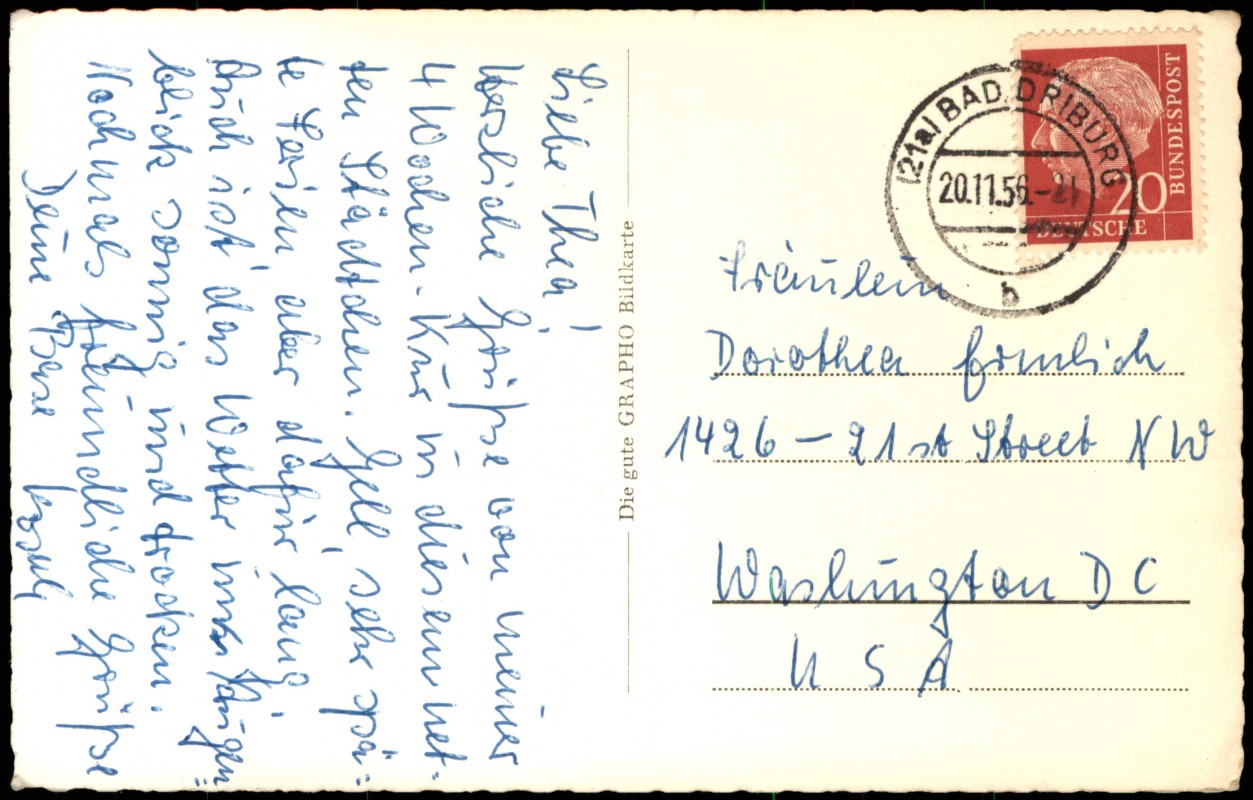 Liebe Thea!
Herzliche Grüße von meiner
4 Wochen-Kur in diesem net-
ten Städtchen. Gell, sehr spä=
te Ferien, aber dafür lang.
Auch ist das Wetter im Augen=
blick sonnig und trocken.
Nochmals freundliche Grüße
Deine Base
Die gute GRAPHO Bildkarte
(21a) BAD DRIBURG
20.11.56.-21
b
20
DEUTSCHE
BUNDESPOST
Fräulein
Dorothea
1426 - 21st Street NW
Washington DC
USA